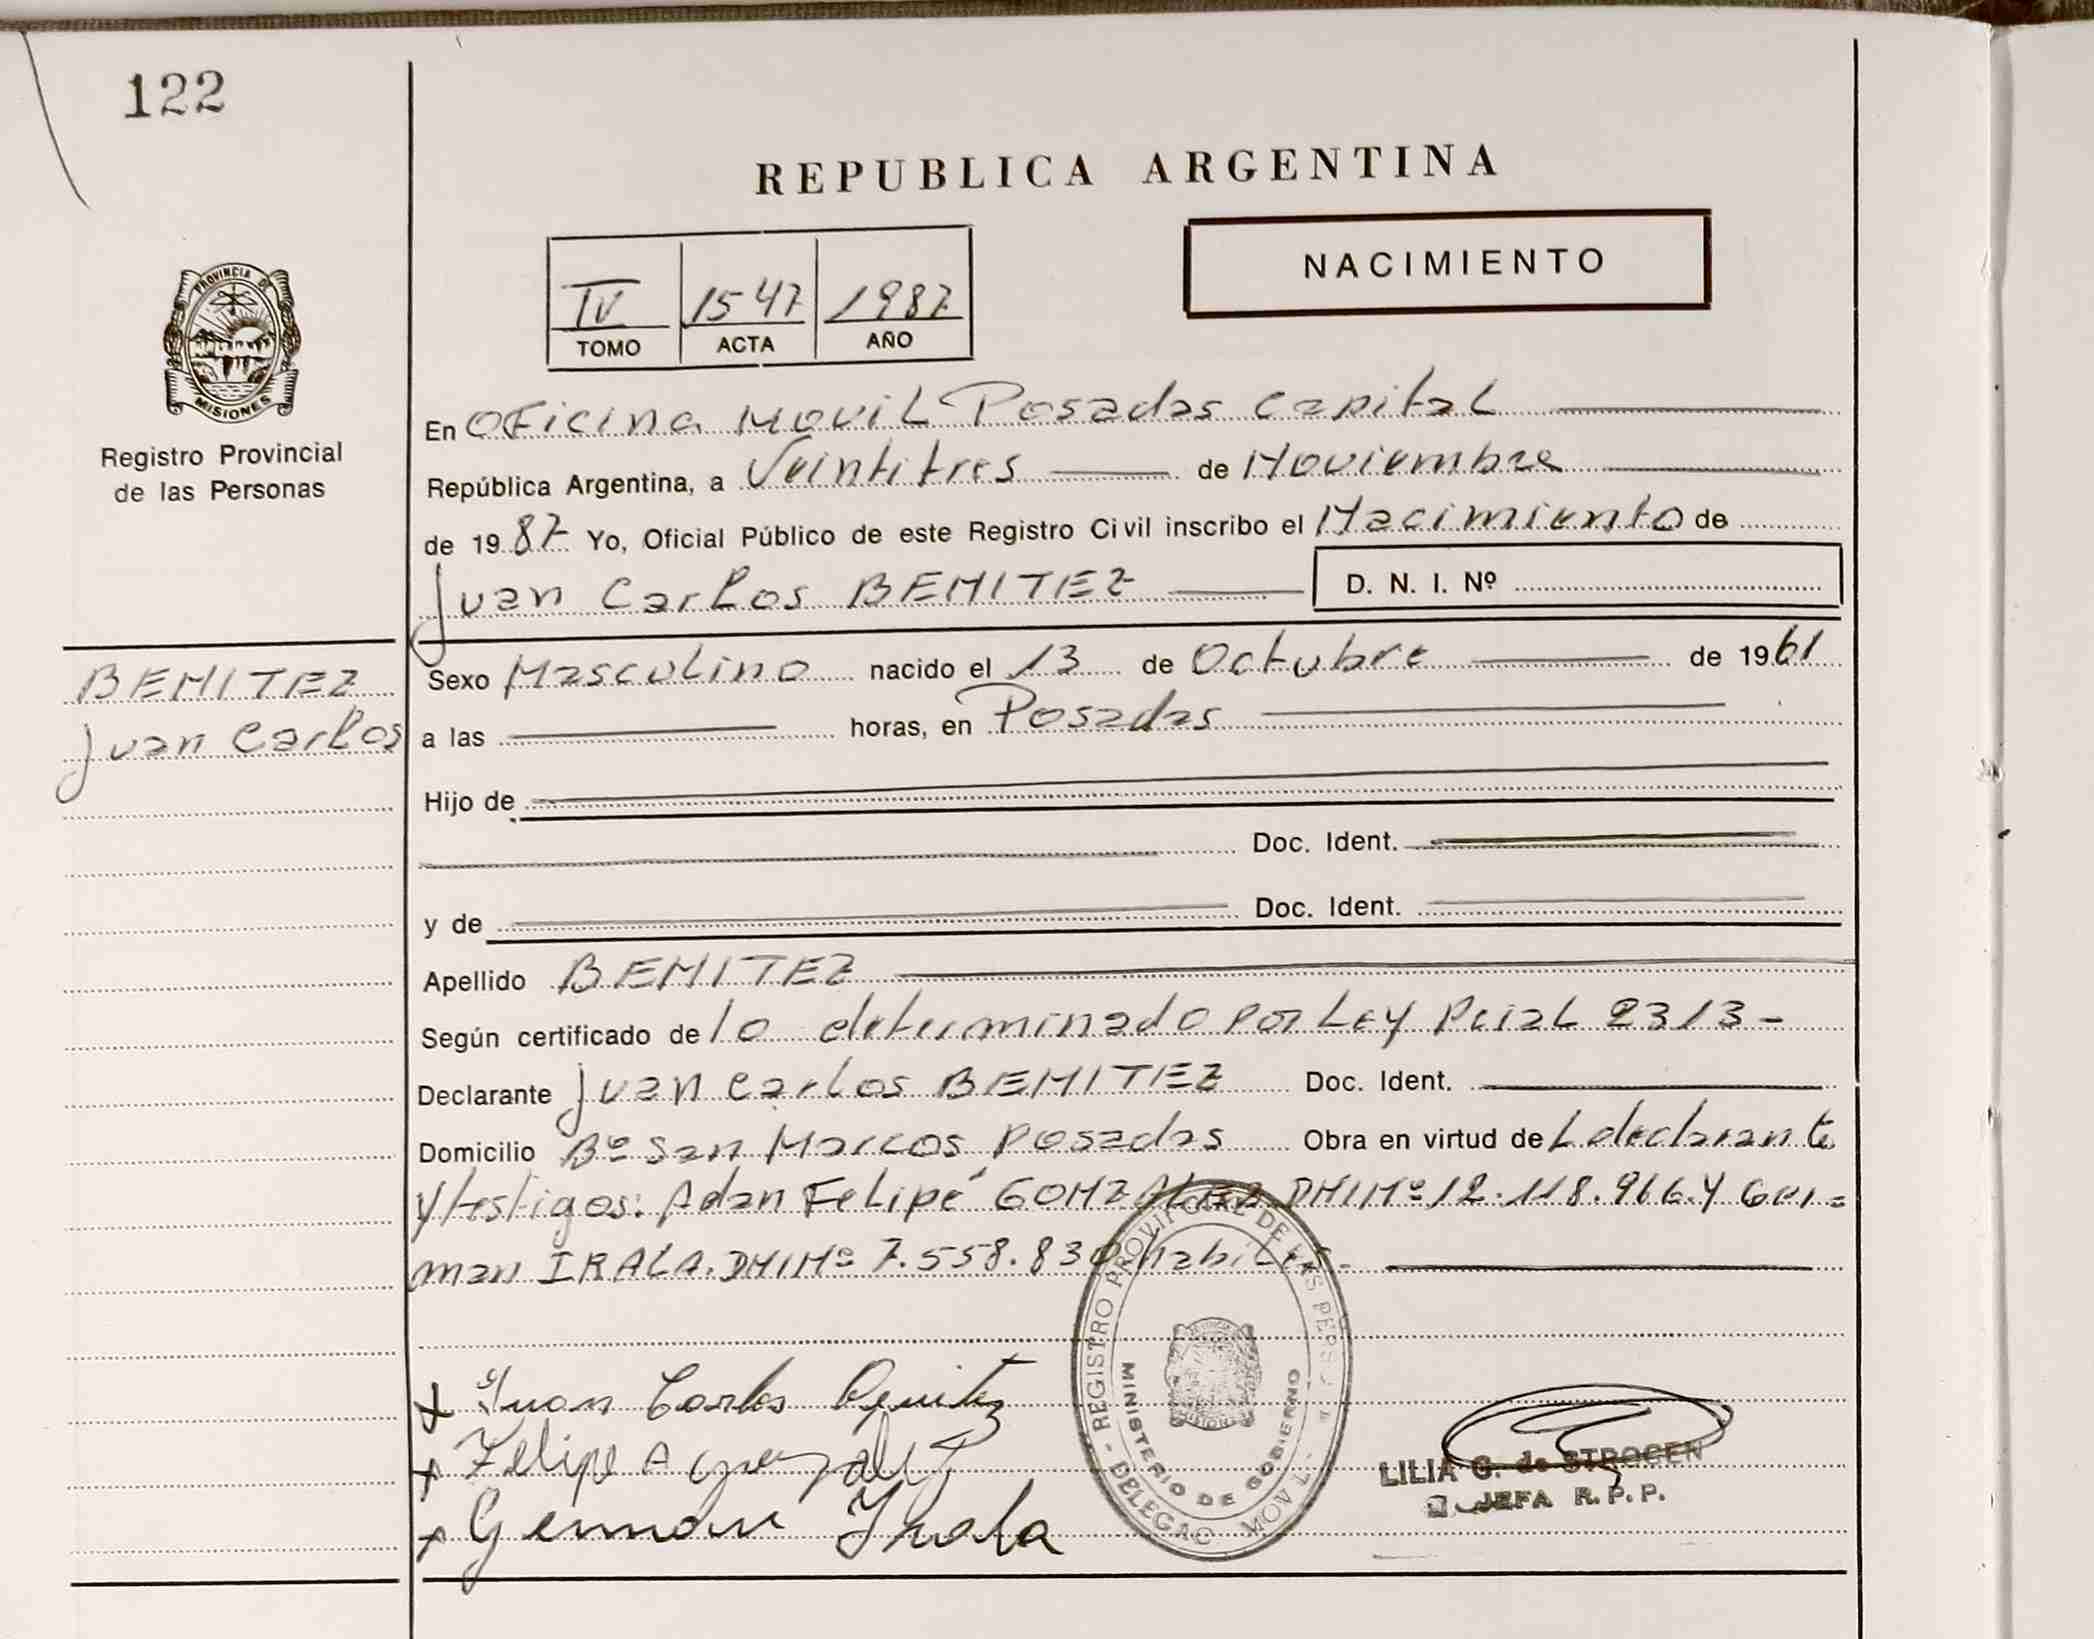 122
REPUBLICA ARGENTINA
NACIMIENTO
IV 1547 1987
TOMO ACTA AÑO
PROVINCIA DE
MISIONES
Registro Provincial
de las Personas
En Oficina Movil Posadas Capital
República Argentina, a Veintitres de Noviembre
de 1987 Yo, Oficial Público de este Registro Civil inscribo el Nacimiento de
Juan Carlos BENITEZ D. N. I. Nº
BENITEZ
Juan Carlos
Sexo Masculino nacido el 13 de Octubre de 1961
a las horas, en Posadas
Hijo de
Doc. Ident.
y de Doc. Ident.
Apellido BENITEZ
Según certificado de lo determinado por Ley Pcial 2313-
Declarante Juan Carlos BENITEZ Doc. Ident.
Domicilio Bº San Marcos Posadas Obra en virtud de L declarante
y testigos: Adan Felipe GONZALEZ DNI Nº 12.118.966. y Ger=
man IRALA. DNI Nº 7.558.830 habiles.-
Juan Carlos Benitez
Felipe A Gonzalez
German Irala
REGISTRO PROVINCIAL DE LAS PERSONAS
MINISTERIO DE GOBIERNO
DELEGAC. MOVIL
LILIA G. de STROGEN
JEFA R.P.P.